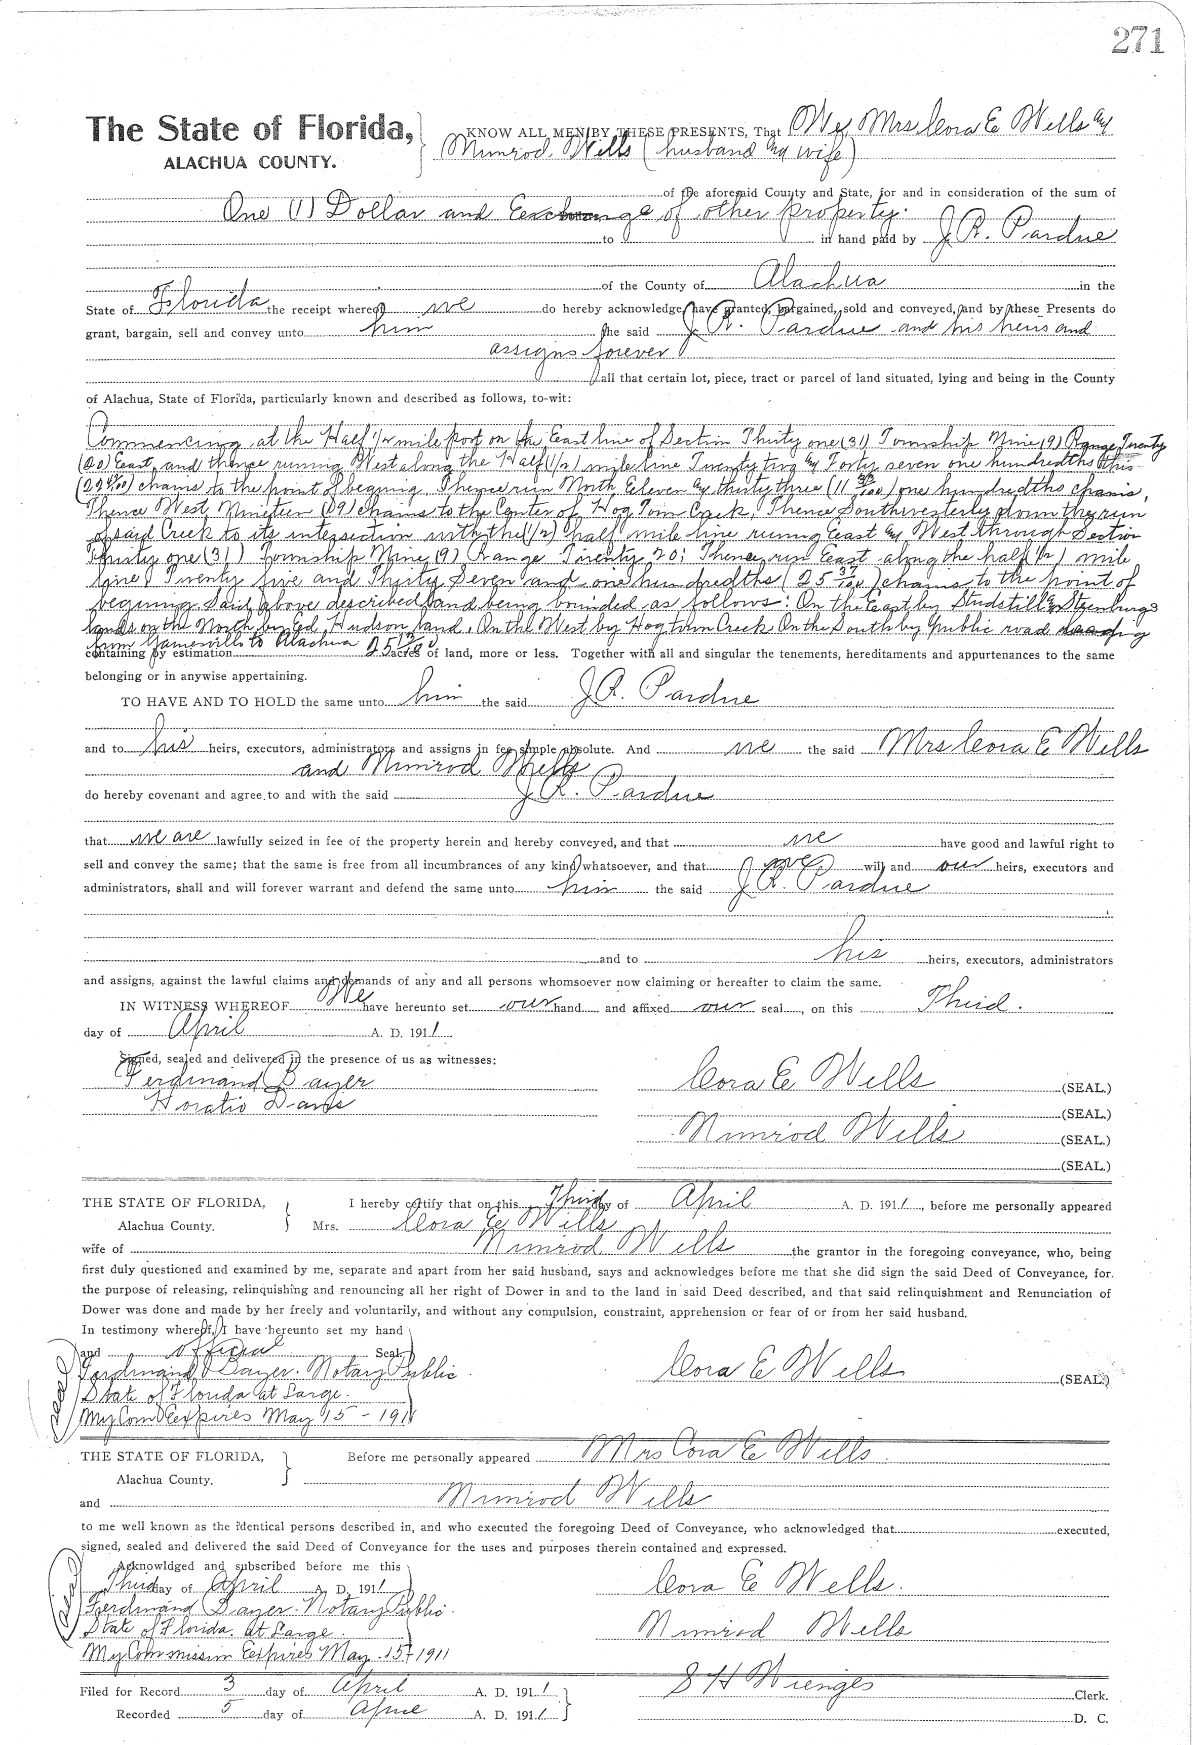 271
The State of Florida,
ALACHUA COUNTY.
KNOW ALL MEN BY THESE PRESENTS, That We, Mrs Cora E Wells &
Nimrod Wells (husband & wife)
of the aforesaid County and State, for and in consideration of the sum of
One (1) Dollar and Exchange of other property.
to in hand paid by J.R. Pardue
of the County of Alachua in the
State of Florida the receipt whereof we do hereby acknowledge, have granted, bargained, sold and conveyed, and by these Presents do
grant, bargain, sell and convey unto him the said J.R. Pardue and his heirs and
assigns forever
all that certain lot, piece, tract or parcel of land situated, lying and being in the County
of Alachua, State of Florida, particularly known and described as follows, to-wit:
Commencing at the Half 1/2 mile post on the East line of Section Thirty one (31) Township Nine (9) Range Twenty
(20) East, and thence runing West along the Half (1/2) mile line Twenty two & Forty seven one hundredths
(22 47/100) chains to the point of begining. Thence run North Eleven & thirty three (11 33/100) one hundredths chains,
Thence West Nineteen (19) chains to the Center of Hog Town Creek, Thence Southwesterly down the run
of said Creek to its intersection with the (1/2) half mile line runing East & West through Section
Thirty one (31) Township Nine (9) Range Twenty 20; Thence run East along the half (1/2) mile
line Twenty five and Thirty Seven and one hundredths (25 37/100) chains to the point of
begining. Said above described land being bounded as follows: On the East by Studstill & Steenburgs
lands on the North by Ed Hudson land, On the West by Hogtown Creek On the South by public road leading
from Gainesville to Alachua
containing by estimation 25 acres of land, more or less. Together with all and singular the tenements, hereditaments and appurtenances to the same
belonging or in anywise appertaining.
TO HAVE AND TO HOLD the same unto him the said J.R. Pardue
and to his heirs, executors, administrators and assigns in fee simple absolute. And we the said Mrs Cora E Wells
and Nimrod Wells
do hereby covenant and agree to and with the said J.R. Pardue
that we are lawfully seized in fee of the property herein and hereby conveyed, and that we have good and lawful right to
sell and convey the same; that the same is free from all incumbrances of any kind whatsoever, and that we will and our heirs, executors and
administrators, shall and will forever warrant and defend the same unto him the said J.R. Pardue
and to his heirs, executors, administrators
and assigns, against the lawful claims and demands of any and all persons whomsoever now claiming or hereafter to claim the same.
IN WITNESS WHEREOF We have hereunto set our hand and affixed our seal, on this Third.
day of April A. D. 1911.
Signed, sealed and delivered in the presence of us as witnesses:
Ferdinand Bayer
Horatio Davis
Cora E Wells (SEAL.)
(SEAL.)
Nimrod Wells (SEAL.)
(SEAL.)
THE STATE OF FLORIDA,
Alachua County.
I hereby certify that on this Third day of April A. D. 1911, before me personally appeared
Mrs. Cora E Wells
wife of Nimrod Wells the grantor in the foregoing conveyance, who, being
first duly questioned and examined by me, separate and apart from her said husband, says and acknowledges before me that she did sign the said Deed of Conveyance, for
the purpose of releasing, relinquishing and renouncing all her right of Dower in and to the land in said Deed described, and that said relinquishment and Renunciation of
Dower was done and made by her freely and voluntarily, and without any compulsion, constraint, apprehension or fear of or from her said husband.
In testimony whereof, I have hereunto set my hand
and official Seal
Ferdinand Bayer. Notary Public
State of Florida at Large.
My Com Expires May 15 - 1911
seal
Cora E Wells (SEAL)
THE STATE OF FLORIDA,
Alachua County.
Before me personally appeared Mrs Cora E Wells
and Nimrod Wells
to me well known as the identical persons described in, and who executed the foregoing Deed of Conveyance, who acknowledged that executed,
signed, sealed and delivered the said Deed of Conveyance for the uses and purposes therein contained and expressed.
Acknowldged and subscribed before me this
Third day of April A. D. 1911
Ferdinand Bayer. Notary Public.
State of Florida. at Large.
My Commission Expires May. 15 1911
seal
Cora E Wells.
Nimrod Wells
Filed for Record 3 day of April A. D. 1911
Recorded 5 day of April A. D. 1911
S H Wienges Clerk.
D. C.